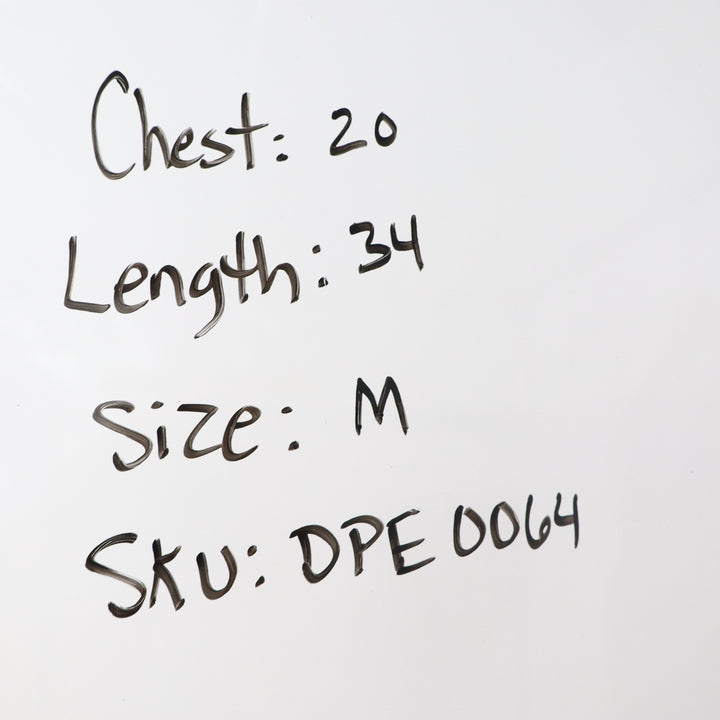 Chest: 20
Length: 34
Size: M
SKU: DPE 0064